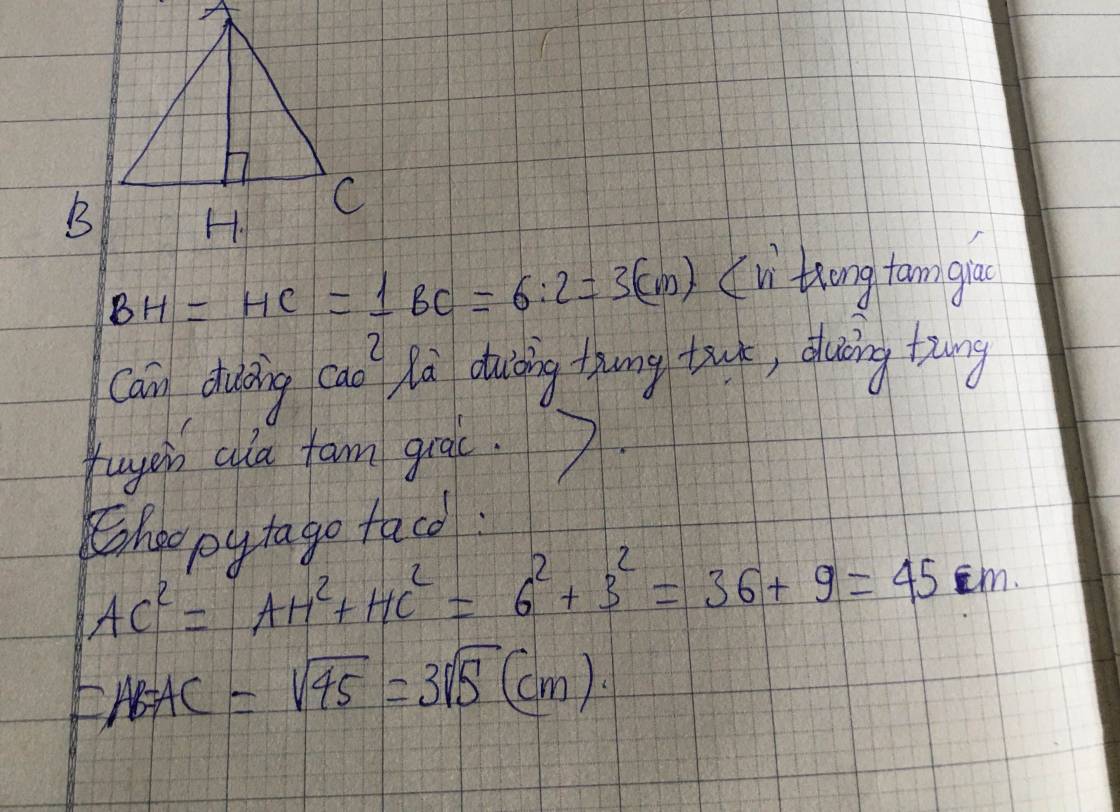 A
B
H.
C
BH = HC = 1/2 BC = 6:2 = 3(cm) < vì trong tam giác
cân đường cao là đường trung trực, đường trung
tuyến của tam giác. >.
Theo pytago ta có:
AC² = AH² + HC² = 6² + 3² = 36 + 9 = 45 cm.
=AB=AC = √45 = 3√5 (cm).